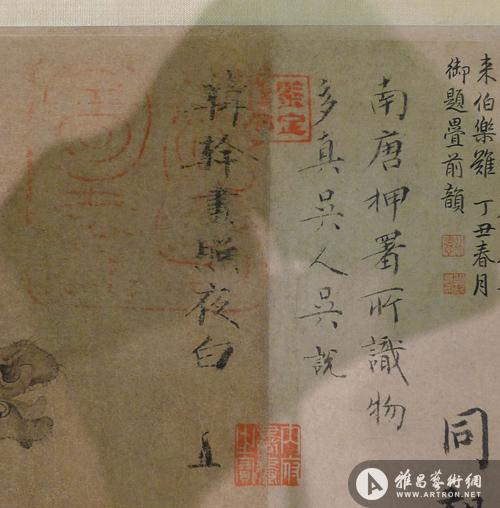 来伯樂雖 丁丑春月
御題疊前韻
南唐押署所識物
多真吳人吳說
韓幹畫照夜白
鑒定
同
雅昌藝術網
WWW.ARTRON.NET